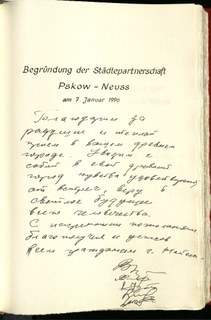 Begründung der Städtepartnerschaft
Pskow - Neuss
am 7. Januar 1990
Благодарим за
радушие и теплый
прием в вашем древнем
городе. Увозим с
собой в свой древний
город чувство удовлетворения
от встреч, веру в
светлое будущее
всего человечества.
С искренними пожеланиями
благополучия и успехов
всем гражданам г. Нойсса.